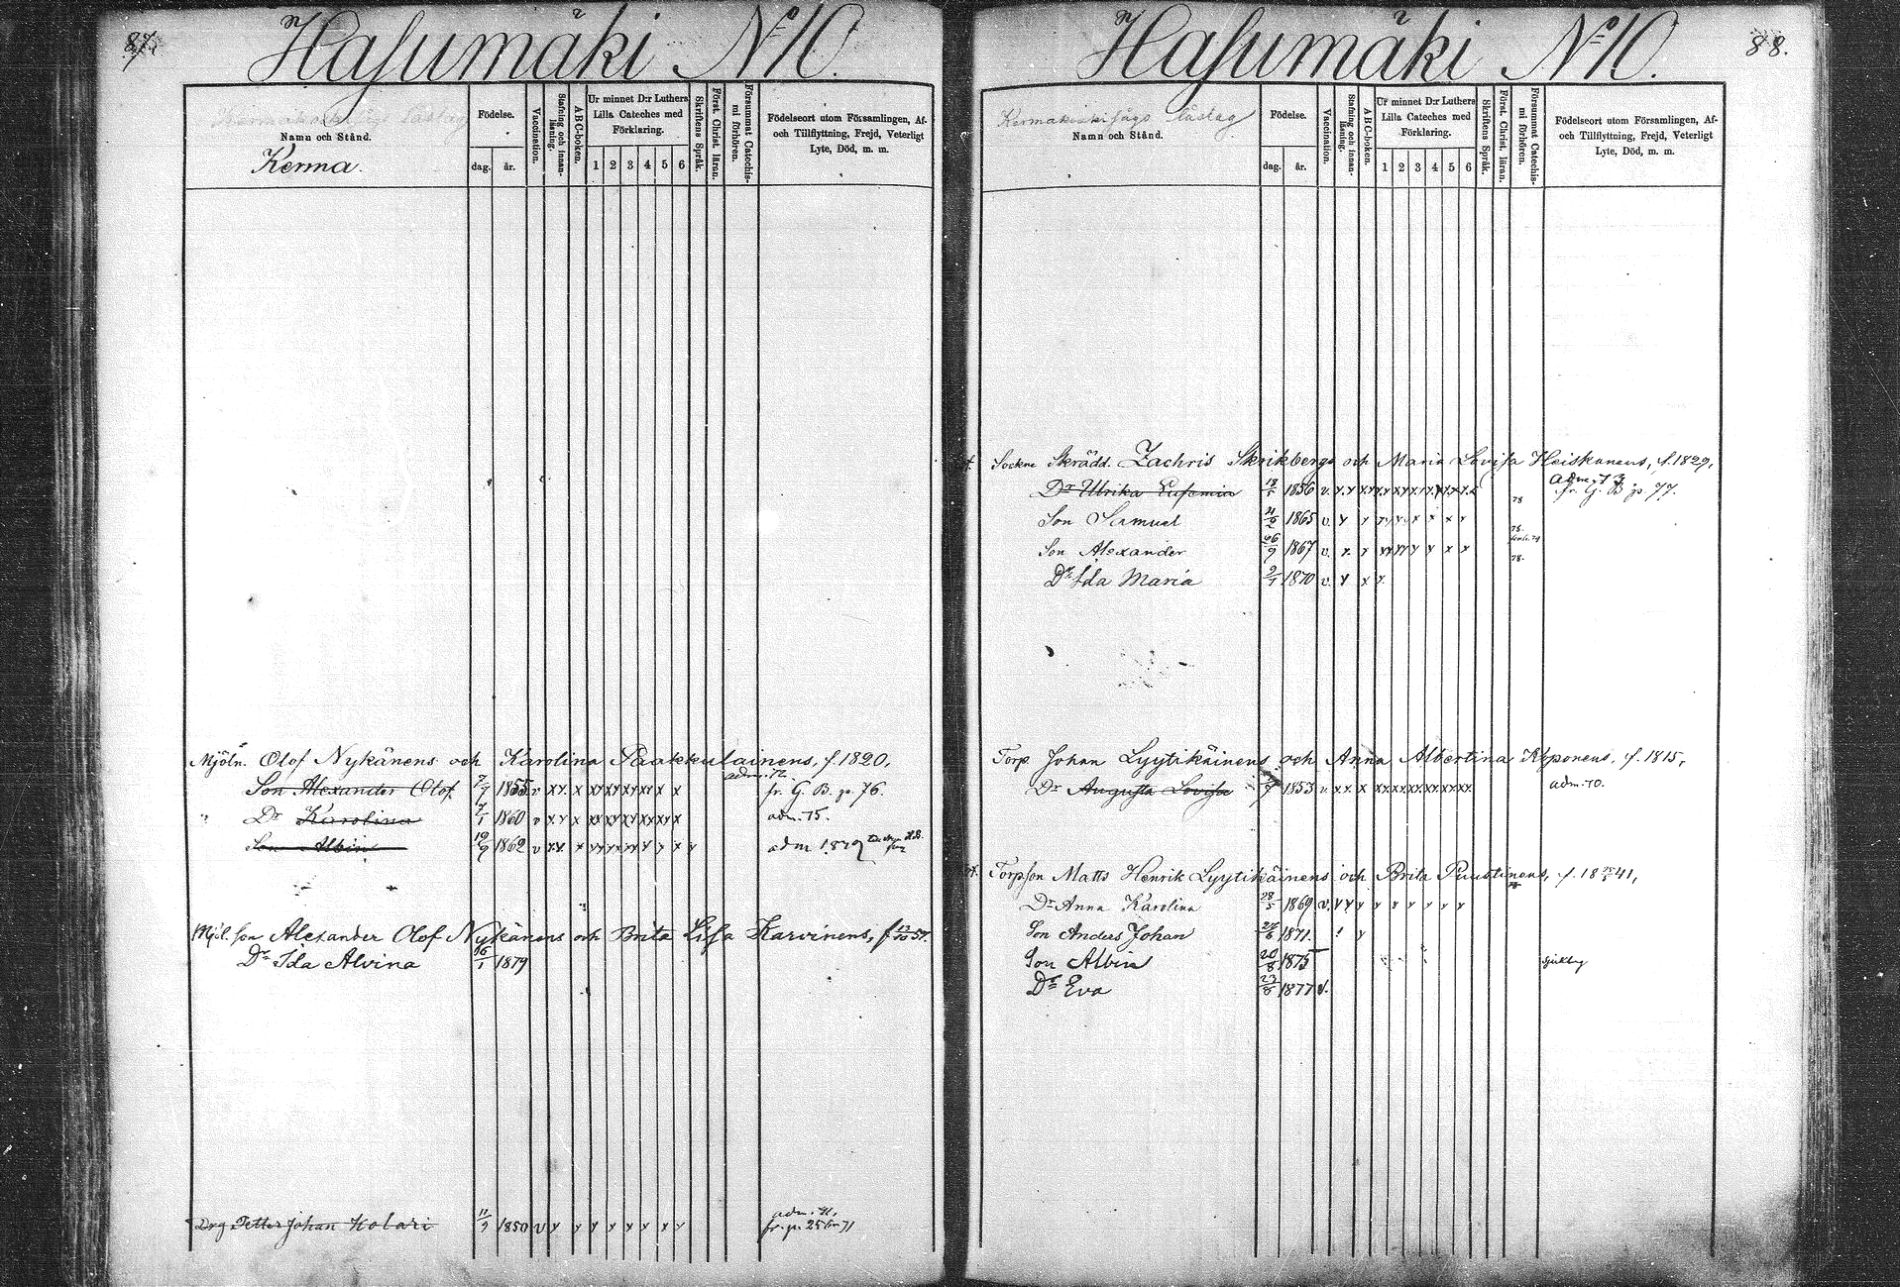 87.
Hasumäki No 10.
Namn och Stånd.
Kerma.
Födelse.
dag. år.
Vaccination.
Stafning och innan-läsning.
ABC-boken.
Ur minnet D:r Luthers Lilla Cateches med Förklaring.
1 2 3 4 5 6
Skriftens Språk.
Först. Christ. läran.
Försummat Catechis-mi förhören.
Födelseort utom Församlingen, Af-
och Tillflyttning, Frejd, Veterligt
Lyte, Död, m. m.
Mjöln. Olof Nykänens och Karolina Paakkulainens, f. 1820,
adm. 72.
Son Alexander Olof 7/7 1855 v x x x x x x x x x x x fr. G. B. p. 76.
Dr Karolina 7/1 1860 v x x x x x x x x x x x adm. 75.
Son Albin 19/9 1862 v x x x x x x x x x x adm 1879
Mjöl. son Alexander Olof Nykänens och Brita Lisa Karvinens, f 57.
Dr Ida Alvina 16/1 1879
adm. 71.
Drg Petter Johan Kolari 11/9 1850 v x x x x x x x x fr. p. 25 71
88.
Hasumäki No 10.
Namn och Stånd.
Födelse.
dag. år.
Vaccination.
Stafning och innan-läsning.
ABC-boken.
Ur minnet D:r Luthers Lilla Cateches med Förklaring.
1 2 3 4 5 6
Skriftens Språk.
Först. Christ. läran.
Försummat Catechis-mi förhören.
Födelseort utom Församlingen, Af-
och Tillflyttning, Frejd, Veterligt
Lyte, Död, m. m.
Sockne Skrädd. Zachris Skrikbergs och Maria Lovisa Heiskanens, f. 1829,
adm. 73
Dr Ulrika Eufemia 18/5 1856 v. x x x x x x x x x x x fr. G. B p. 77.
78
Son Samuel 1865 v x x x x x x x x
Son Alexander 26/9 1867 v. x x x x x x x x 78.
Dr Ida Maria 9/1 1870 v x x x
Torp. Johan Lyytikäinens och Anna Albertina Kopponens, f. 1815,
Dr Augusta Lovisa 1853 v x x x x x x x x x x x adm. 70.
Torpson Matts Henrik Lyytikäinens och Brita Puustinens, f. 18 41,
Dr Anna Karolina 28/5 1869 v. x x x x x x x x
Son Anders Johan 1871.
Son Albin 20/8 1875 sjuklig
Dr Eva 23/8 1877 v.